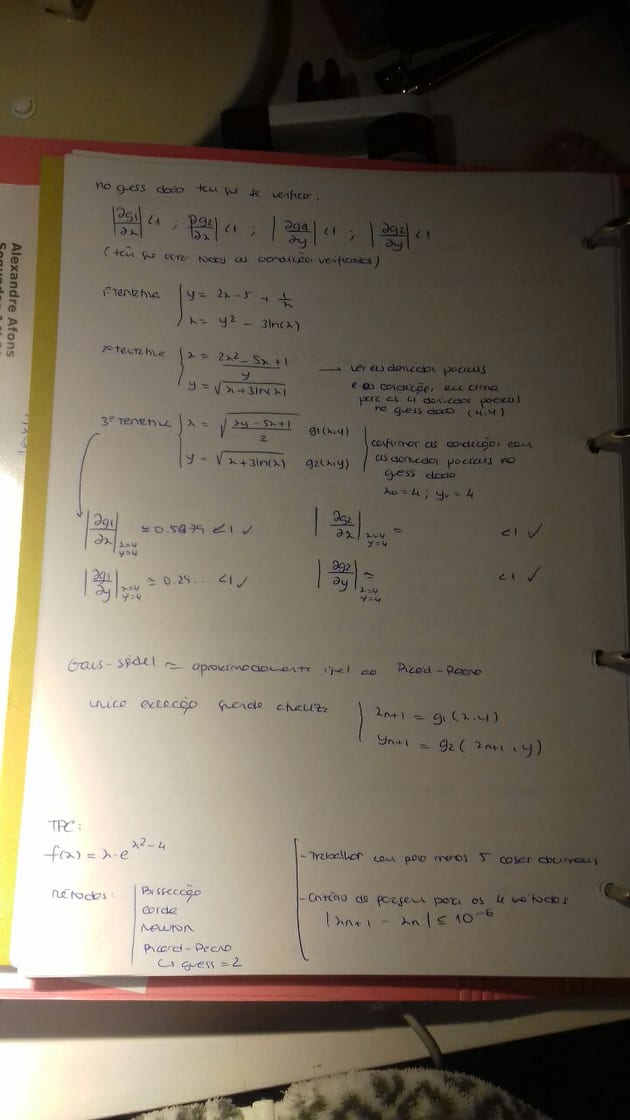 no gess dado tem que se verificar:
|∂g1/∂x| <1 ; |∂g2/∂x| <1 ; |∂g1/∂y| <1 ; |∂g2/∂y| <1
(têm que estar todas as condições verificadas)
1ª tentativa { y = 2x - 5 + 1/x
x = y² - 3ln(x)
2ª tentativa { x = (2x² - 5x + 1)/y
y = √(x + 3ln(x))
→ ver as derivadas parciais
e as condições em cima
para as 4 derivadas parciais
no gess dado (4,4)
3ª tentativa { x = √((xy - 5x + 1)/2) g1(x,y)
y = √(x + 3ln(x)) g2(x,y)
confirmar as condições com
as derivadas parciais no
gess dado
x0 = 4 ; y0 = 4
|∂g1/∂x| x=4 y=4 ≃ 0.5679 <1 ✓
|∂g2/∂x| x=4 y=4 ≃ <1 ✓
|∂g1/∂y| x=4 y=4 ≃ 0.25... <1 ✓
|∂g2/∂y| x=4 y=4 ≃ <1 ✓
Gaus-Seidel ≃ aproximadamente igual ao Picard-Peano
unica exceção
{ xn+1 = g1(x,y)
yn+1 = g2(xn+1, y)
TPC:
f(x) = x·e^(x²-4)
Métodos:
Bissecção
corda
Newton
Picard-Peano
↳ guess = 2
- Trabalhar com pelo menos 5 casas decimais
- Critério de paragem para os 4 métodos
|xn+1 - xn| ≤ 10^-6
Alexandre Afons